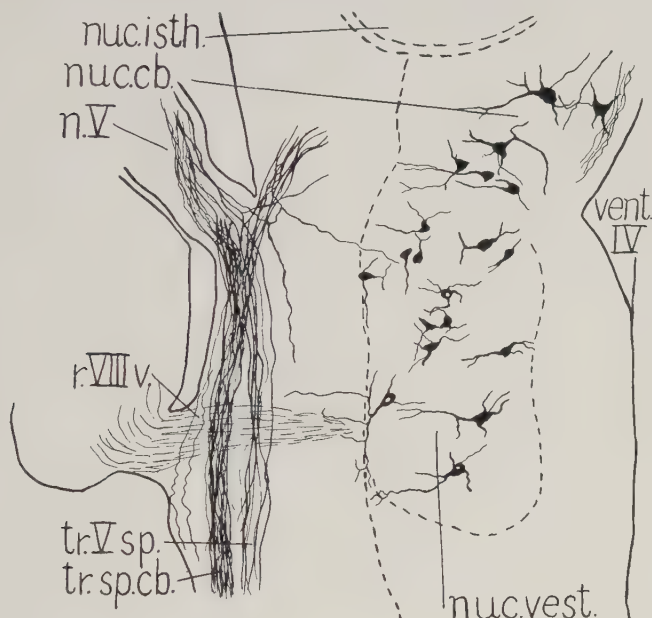 nuc.isth.
nuc.cb.
n.V
vent.
IV
r.VIII v.
tr.V sp.
tr.sp.cb.
nuc.vest.